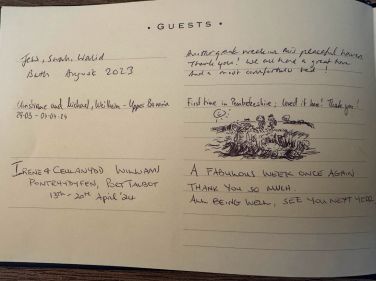 • GUESTS •
Jess, Sarah, Walid
August 2023
Another great week in this peaceful haven
Thank you! We all had a great time
And a most comfortable bed!
and Michael, Weilheim - Upper Bavaria
29.03 - 07.04.24
First time in Pembrokeshire; loved it here! Thank you!
IRENE & CEULANYDD WILLIAMS
PONTRHYDYFEN, PORT TALBOT
13th - 20th April '24
A FABULOUS WEEK ONCE AGAIN
THANK YOU SO MUCH.
ALL BEING WELL, SEE YOU NEXT YEAR